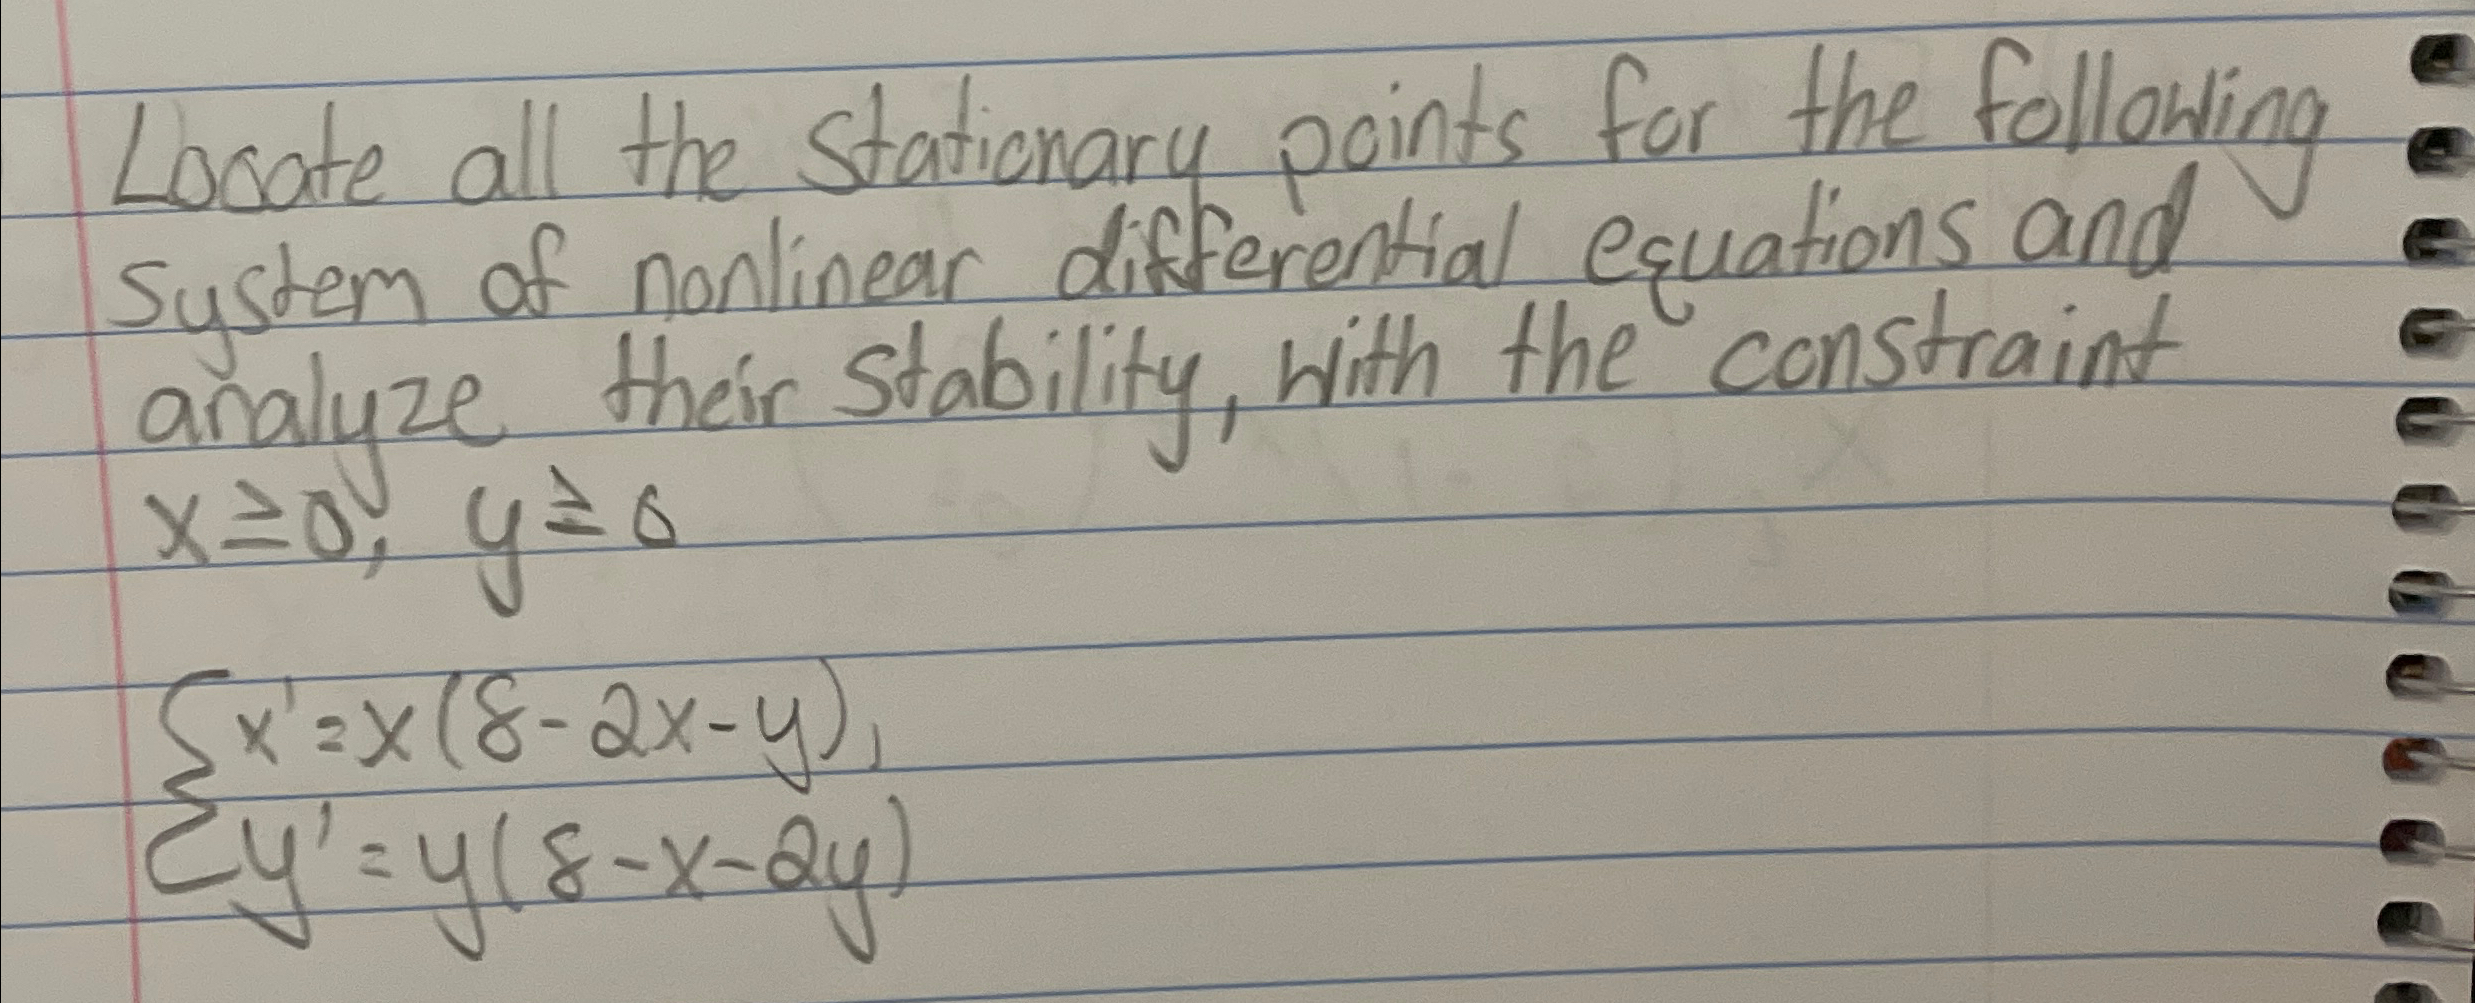 Locate all the stationary points for the following
system of nonlinear differential equations and
analyze their stability, with the constraint
x≥0, y≥0
{x'=x(8-2x-y),
y'=y(8-x-2y)